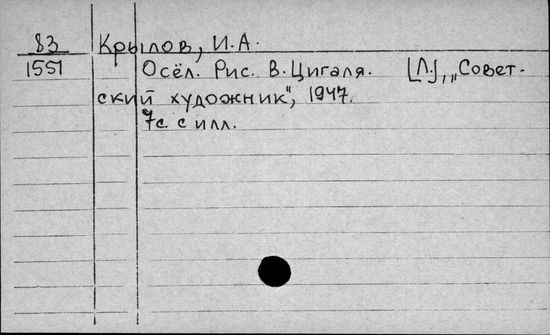 83 Крылов, И.А.
1551 Осёл. Рис. В. Цигаля. [Л.], „Совет-
ский художник", 1947.
7с. с илл.